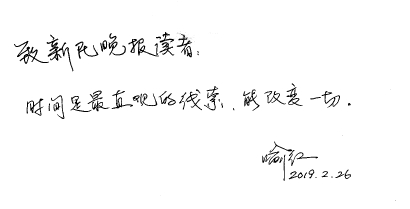 致新民晚报读者:
时间是最直观的线索,能改变一切。
喻红
2019.2.26